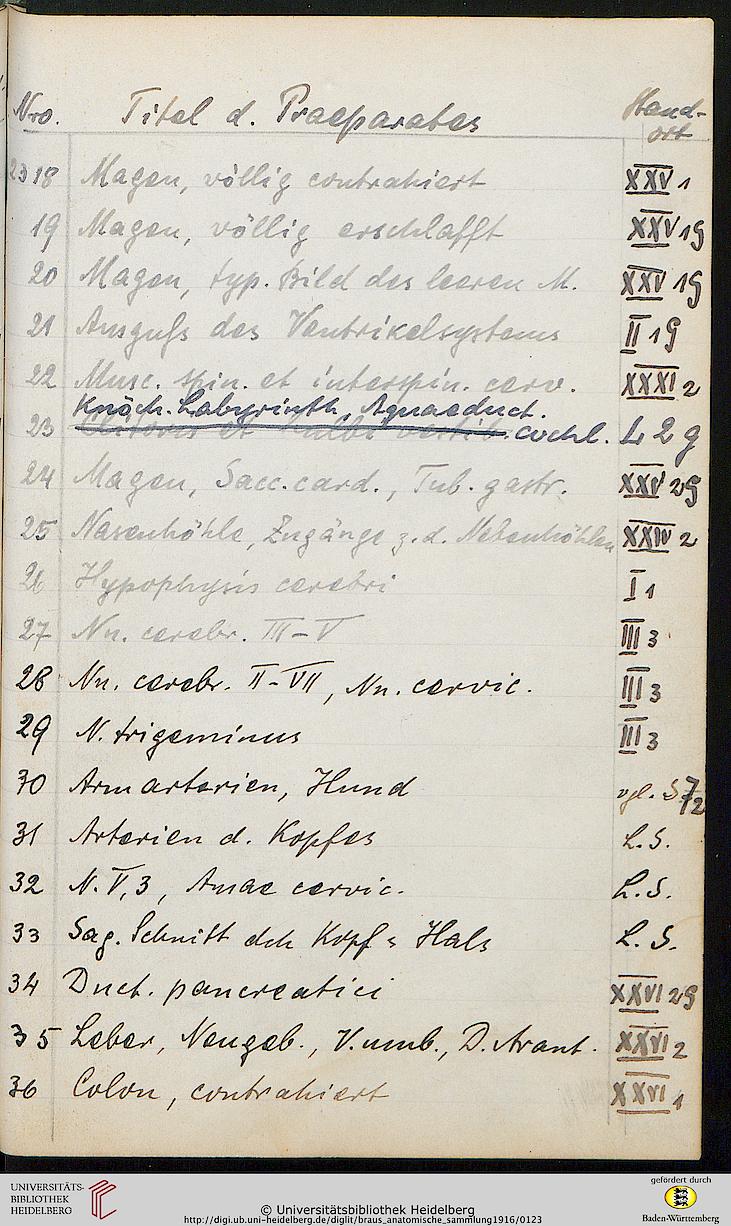 Nro. Titel d. Praeparates Stand-
ort
2318 Magen, völlig contrahiert XXV 1
19 Magen, völlig erschlafft XXV 19
20 Magen, typ. Bild des leeren M. XXV 19
21 Ausguſs des Ventrikelsystems II 19
22 Musc. spin. et interspin. cerv. XXXI 2
Knöch. Labyrinth, Aquaeduct.
23 Clitoris et bulbi vestib. cochl. L 2 g
24 Magen, Sacc. card., Tub. gastr. XXV 29
25 Nasenhöhle, Zugänge z. d. Nebenhöhlen XXIV 2
26 Hypophysis cerebri I 1
27 Nn. cerebr. III-V III 3
28 Nn. cerebr. II-VII, Nn. cervic. III 3
29 N. trigeminus III 3
30 Armarterien, Hund vgl. S 7/2
31 Arterien d. Kopfes L. S.
32 N. V, 3, Ansae cervic. L. S.
33 Sag. Schnitt dch Kopf = Hals L. S.
34 Duct. pancreatici XXVI 29
35 Leber, Neugeb., V. umb., D. Arant. XXVI 2
36 Colon, contrahiert XXVI 1
UNIVERSITÄTS-
BIBLIOTHEK
HEIDELBERG
© Universitätsbibliothek Heidelberg
http://digi.ub.uni-heidelberg.de/diglit/braus_anatomische_sammlung1916/0123
gefördert durch
Baden-Württemberg